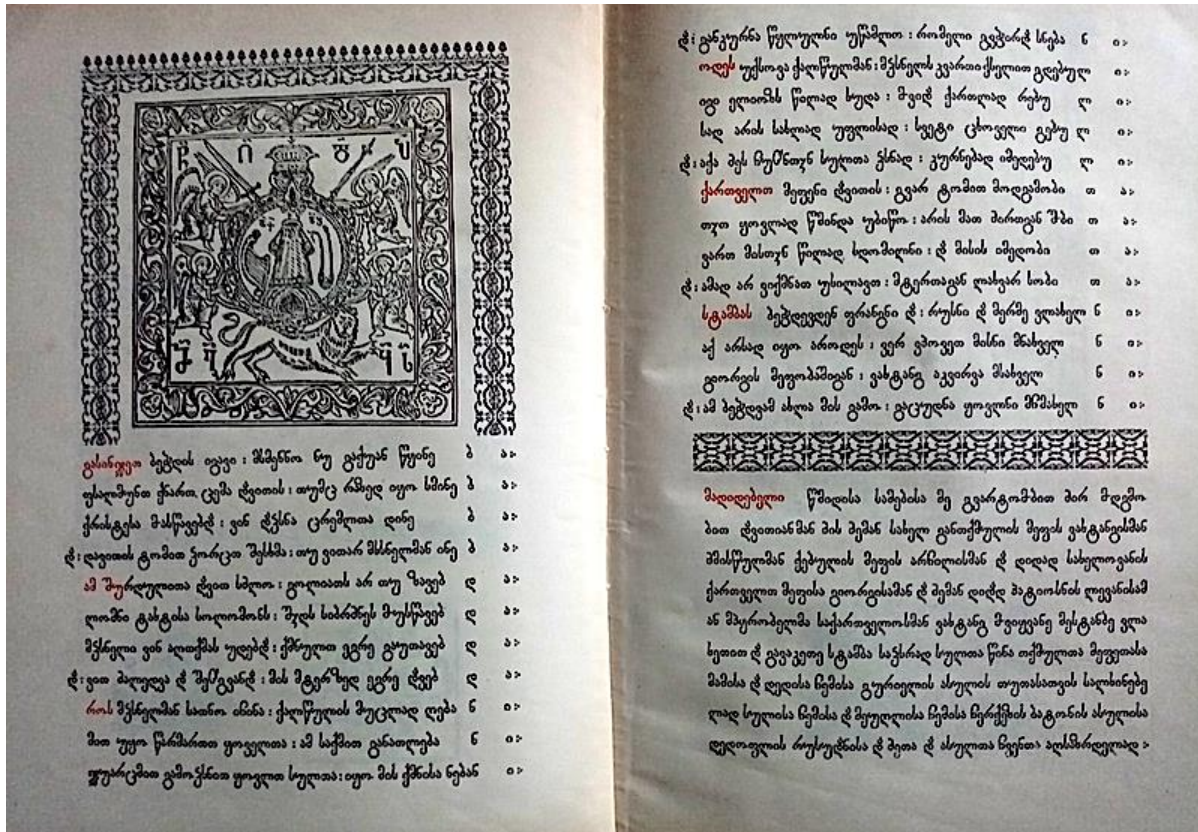 გასინჯეთ ბეჭდის იგავი : მსმენნო ნუ გაქუან წყინე ბ ა
ფსალმუნთ ქნართ, ცემა დ˜ვითის : თუმც რაზედ იყო სმინე ბ ა
ქრისტესა მასწავებდ˜ : ვინ დჴსნა ცრემლთა დინე ბ ა
დ˜ : დავითის ტომით ჴორცთ შესხმა : თუ ვითარ მხსნელმან ინე ბ ა
ამ შურდულითა დ˜ვით სძლო : გოლიათს არ თუ ზავებ დ ა
ლომნი ტახტისა სოლომონს : შჳდს სიბრძნეს მუსწავებ დ ა
მჴსნელი ვინ აღთქმას უდებდ˜ : ქმნულთ ეგრე გაუთავებ დ ა
დ˜ : ვით მტერზედ ეგრე დ˜ვებ დ ა
როს მჴსნელმან სათნო იჩინა : ქალწულის მუცლად ღება ნ ი
მით უყო წარმართთ ყოველთა : ამ საქმით განათლება ნ ი
ჯუარცმით გამოჴსნით ყოვლთ სულთა : იყო მის ქმნისა ნებან ი
დ˜ : განკურნა წყლულნი უწამლო : რომელი გვჭირდ˜ სნება ნ ი
ოდეს უქსოვა ქალწულმან : მჴსნელს კვართი ქსელით გდებულ
იგი ელიოზს წილად ხუდა : მვიდ˜ ქართლად რებუ ლ ი
სად არის სახლად უფლისად : სვეტი ცხოველი გებუ ლ ი
დ˜ : აქა მეს ჩუჱნთჳს სულთა ჴსნად : კურნებად იმედებუ ლ ი
ქართველთ მეფენი დ˜ვითის : გვარ ტომით მოდგამობი თ ა
თჳთ ყოვლად წმინდა უბიწო : არის მათ მირთგან შ˜ბი თ ა
ვართ მისთჳს წილად ხდომილნი : დ˜ მისის იმედობი თ ა
დ˜ : ამად არ ვიქმნათ უხილავთ : მტერთაგან ლახვარ სობი თ ა
სტამბას ბეჭდევდენ ფრანგნი დ˜ : რუსნი დ˜ მერმე ვლახელ ნ ი
აქ არსად იყო აროდეს : ვერ ვპოვეთ მისნი მნახველ ნ ი
გიორგის მეფობაშიგან : ვახტანგ აკვირვა მსახველ ნ ი
დ˜ : ამ ბეჭდვამ ახლა მის გამო : გაცუდნა ყოვლნი მძრახელ ნ ი
მადიდებელი წმიდისა სამებისა მე გვარტომბით მირ მდგმო
ბით დ˜ვითიანმან მის ძემან სახელ განთქმულის მეფის ვახტანგისმან
ძმისწულმან ქებულის მეფის არჩილისმან დ˜ დიდად სახელოვანის
ქართველთ მეფისა გიორგისამან დ˜ ძემან დიდ˜დ პატიოსნის ლევანისამ
ან მპყრობელმა საქართველოსმან ვახტანგ მვიყვანე მესტანბე ვლა
ხეთით დ˜ გავაკეთე სტამბა საჴსრად სულთა წინა თქმულთა მეფეთასა
მამისა დ˜ დედისა ჩემისა გურიელის ასულის თუთასათვის სალხინებე
ლად სულის ჩემისა დ˜ მეუღლისა ჩემისა ჩერქეზის ბატონის ასულისა
დედოფლის რუსუდ˜ნისა დ˜ ძეთა დ˜ ასულთა ჩვენთა აღსაზრდელად